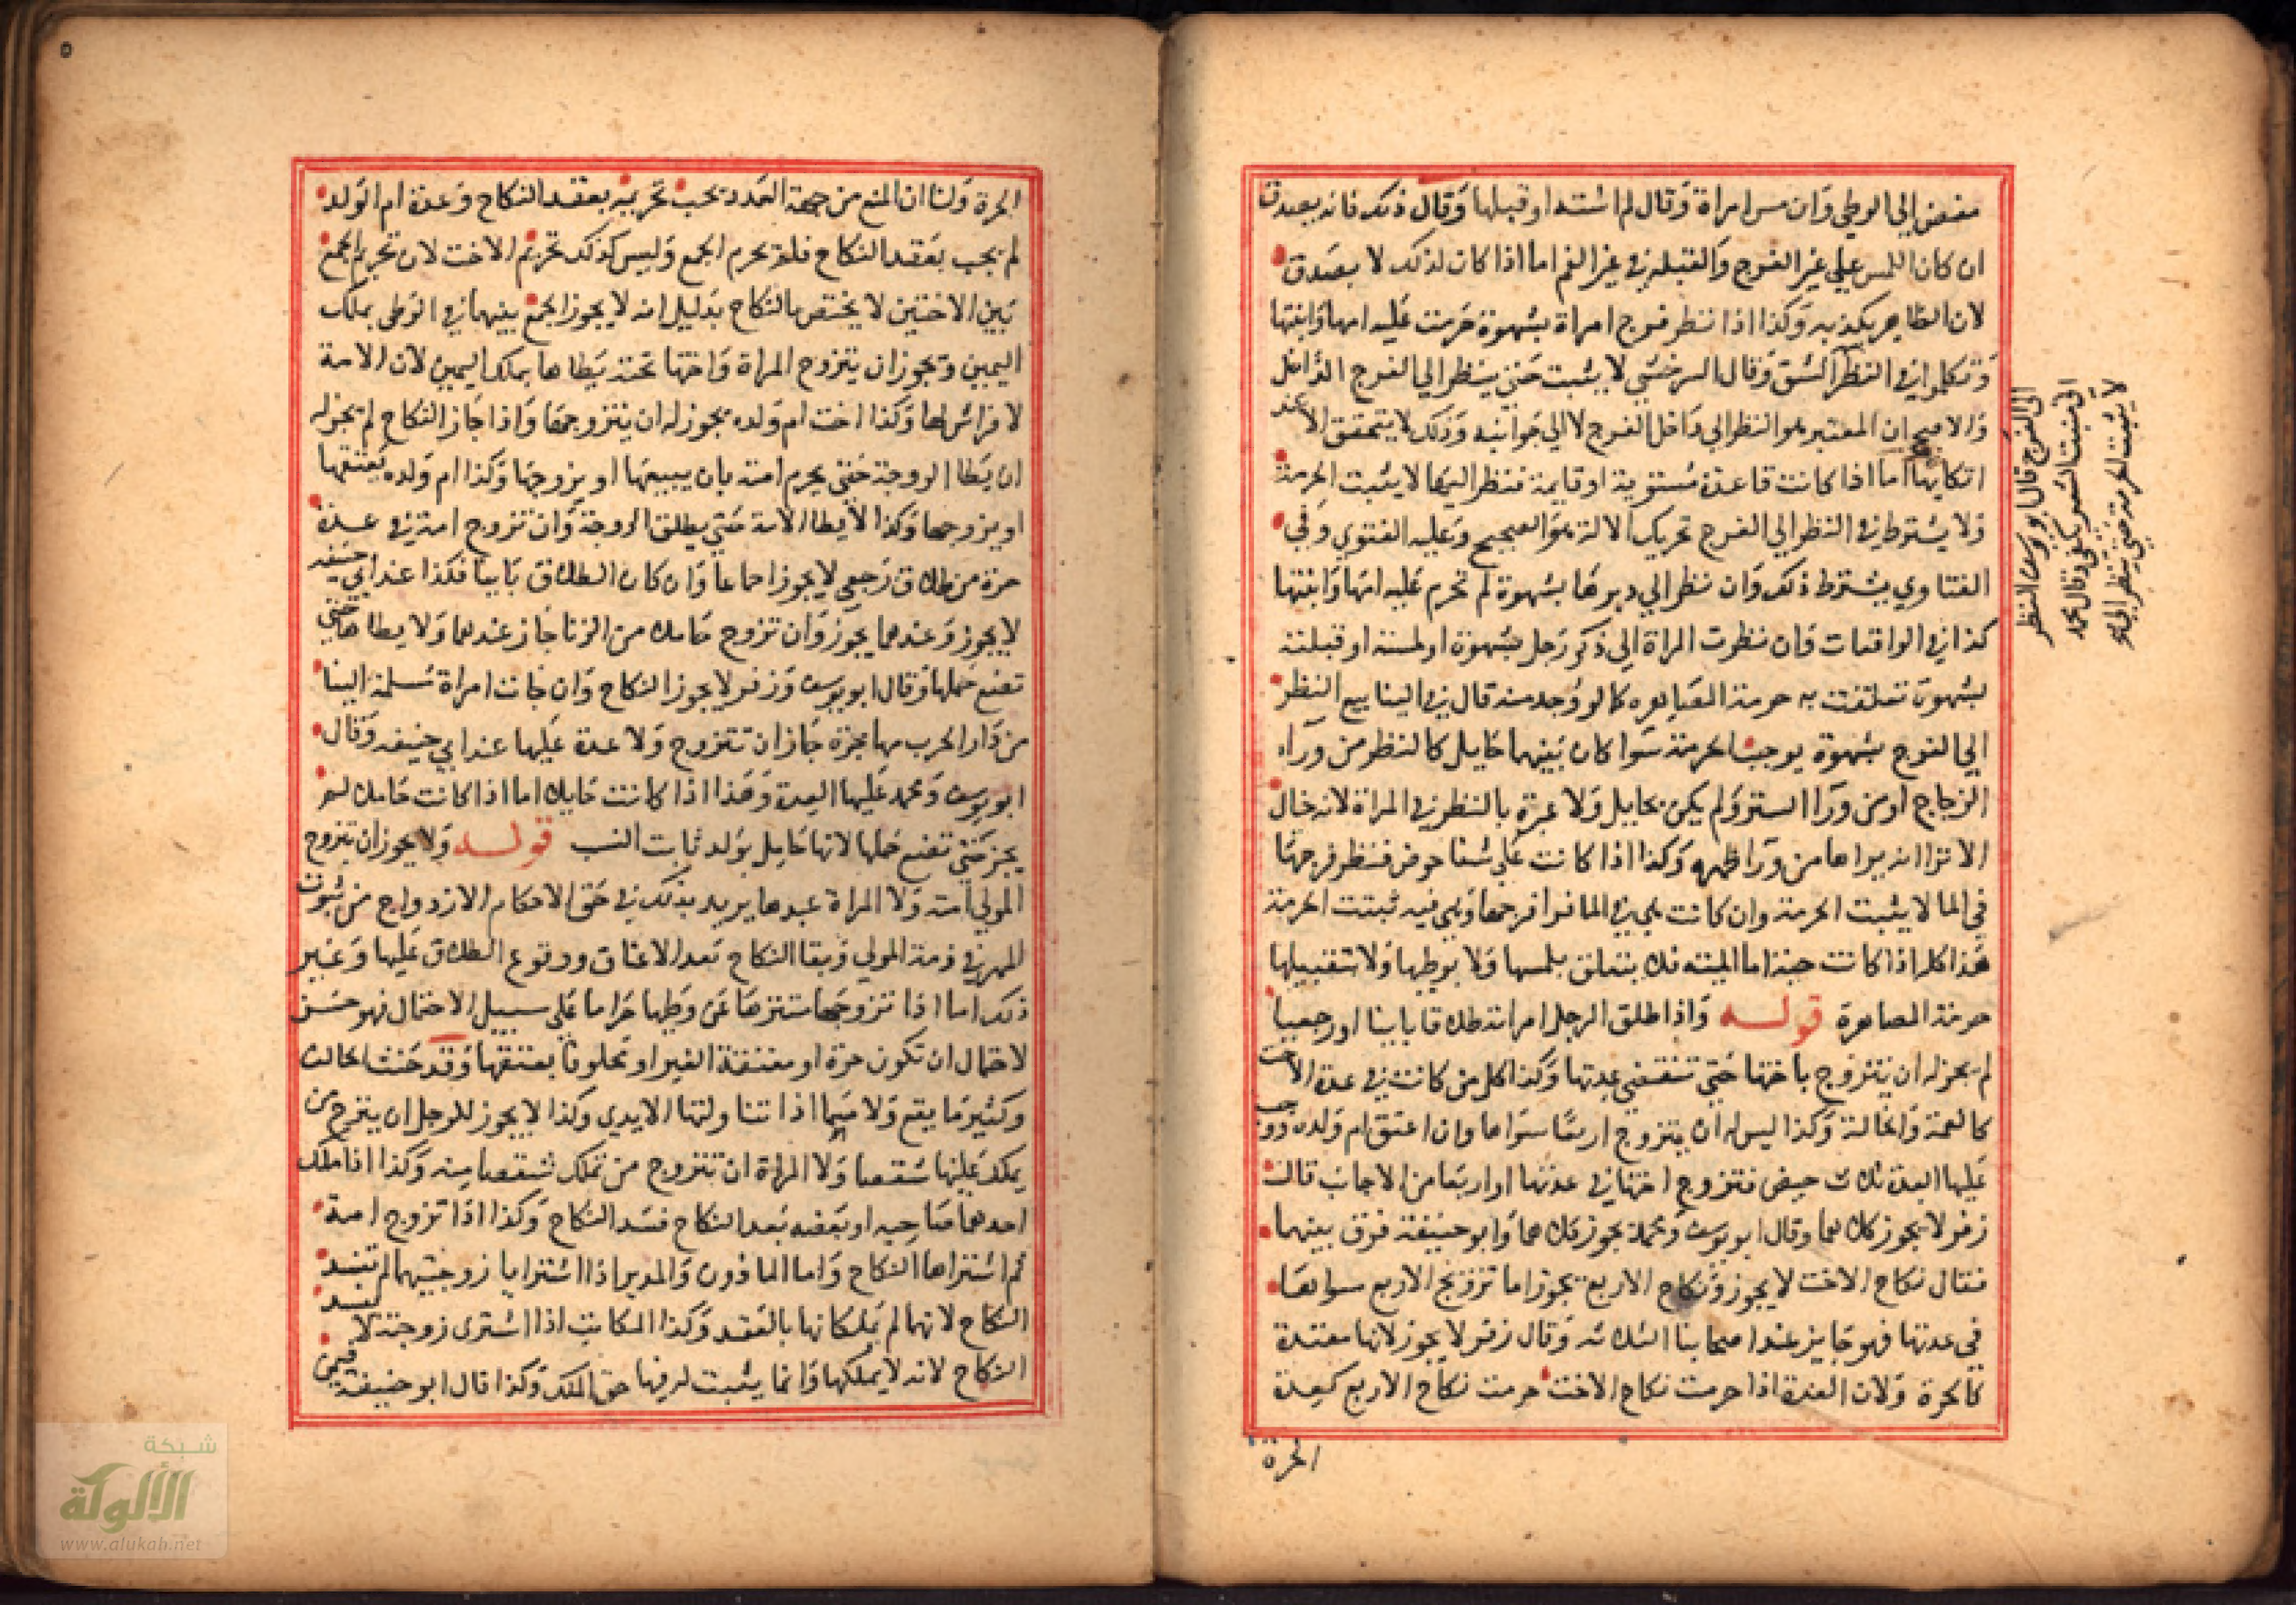 مفض الى الوطي وان مس امراة وقال لم اشته او قبلها وقال ذلك فانه يصدق
ان كان اللمس علي غير الفرج والقبلة في غير الفم اما اذا كان لذلك لا يصدق
لان الظاهر يكذبه وكذا اذا نظر فرج امراة بشهوة حرمت عليه امها وابنتها
وتكلموا في النظر الشق وقال السرخسي لا يثبت حتى ينظر الي الفرج الداخل
والاصح ان المعتبر هو النظر الي داخل الفرج لا الي جوانبه وذلك لا يتحقق الا عند
اتكايها اما اذا كانت قاعدة مستوية او قايمة فنظر اليها لا يثبت الحرمة
ولا يشترط في النظر الي الفرج تحريك الالة هو الصحيح وعليه الفتوي وفي
الفتاوي يشترط ذلك وان نظر الي دبرها بشهوة لم تحرم عليه امها وابنتها
كذا في الواقعات فان نظرت المراة الي ذكر رجل بشهوة او لمسته او قبلته
بشهوة تعلقت به حرمة المصاهرة كما لو وجد منه قال في الينابيع النظر
الي الفرج بشهوة يوجب الحرمة سوا كان بينهما حايل كالنظر من وراء
الزجاج او من ورا الستر ولم يكن بحايل ولا عبرة بالنظر في المراة لانه خال
الا ترا انه يراها من ورا ظهره وكذا اذا كانت علي شفا حوض فنظر فرجها
في الما لا يثبت الحرمة وان كانت هي في الما فرا فرجها وهي فيه ثبتت الحرمة
هذا كله اذا كانت حية اما الميتة فلا يتعلق بلمسها ولا بوطيها ولا بتقبيلها
حرمة المصاهرة قوله واذا طلق الرجل امراته طلاقا باينا او رجعيا
لم يجز له ان يتزوج باختها حتي تنقضي عدتها وكذا كل من كانت في عدة الاخت
كالعمة والخالة وكذا ليس له ان يتزوج اربعا سواها وان اعتق ام ولده ووجب
عليها العدة ثلاث حيض فتزوج اختها في عدتها او اربعا من الاجانب قال
زفر لا يجوز كلاهما وقال ابو يوسف ومحمد يجوز كلاهما وابو حنيفة فرق بينهما
فقال نكاح الاخت لا يجوز ونكاح الاربع يجوز اما تزويج الاربع سواها
في عدتها فهو جايز عند اصحابنا الثلاثه وقال زفر لا يجوز لانها معتدة
كالحرة ولان العدة اذا حرمت نكاح الاخت حرمت نكاح الاربع كعدة
الحرة
الي الفرج قال ابو يوسف النظر
الى منبت الشعر يكفى وقال محمد
لا يثبت الحرمة حتى ينظر الى
الحرة ولنا ان المنع من جهة العدد يجب تحريمه بعقد النكاح وعدة ام الولد
لم يجب بعقد النكاح فلم يحرم الجمع وليس كذلك تحريم الاخت لان تحريم الجمع
بين الاختين لا يختص بالنكاح بدليل انه لا يجوز الجمع بينهما في الوطى بملك
اليمين ويجوز ان يتزوج المراة واختها تحته يطاها بملك اليمين لان الامة
لا فراش لها وكذا اخت ام ولده يجوز له ان يتزوجها واذا جاز النكاح لم يجز له
ان يطا الزوجة حتى يحرم امته بان يبيعها او يزوجها وكذا ام ولده يعتقها
او يزوجها وكذا لا يطا الامة حتي يطلق الزوجة وان تزوج امة في عدة
حرة من طلاق رجعي لا يجوز اجماعا وان كان الطلاق باينا فكذا عند ابي حنيفه
لا يجوز وعندهما يجوز وان تزوج حاملا من الزنا جاز عندهما ولا يطاها حتي
تضع حملها وقال ابو يوسف وزفر لا يجوز النكاح وان جات امراة مسلمة الينا
من دار الحرب مهاجرة جاز ان تتزوج ولا عدة عليها عند ابي حنيفه وقال
ابو يوسف ومحمد عليها العدة وهذا اذا كانت حايلا اما اذا كانت حاملا لم
يجز حتى تضع حملها لانها حامل بولد ثابت النسب قوله ولا يجوز ان يتزوج
المولي امته ولا المراة عبدها يريد بذلك في حق الاحكام الازدواج من ثبوت
المهر في ذمة المولي وبقا النكاح بعد الاعتاق ووقوع الطلاق عليها وغير
ذلك اما اذا تزوجها متنزها عن وطيها حراما علي سبيل الاحتمال فهو حسن
لاحتمال ان تكون حرة او معتقة الغير او محلوفا بعتقها وقد حنث الحالف
وكثير ما يقع ولا سيما اذا تناولتها الايدي وكذا لا يجوز للرجل ان يتزوج من
يملك عليها شقصا ولا المراة ان تتزوج من تملك شقصا منه وكذا اذا ملك
احدهما صاحبه او بعضه بعد النكاح فسد النكاح وكذا اذا تزوج امة
ثم اشتراها النكاح واما الماذون والمدبر اذا اشتريا زوجتيهما لم تفسد
النكاح لانهما لم يملكانها بالعقد وكذا المكاتب اذا اشترى زوجته لا يفسد
النكاح لانه لا يملكها وانما يثبت له فيها حق الملك وكذا قال ابو حنيفة فيمن
شبكة
الألوكة
www.alukah.net